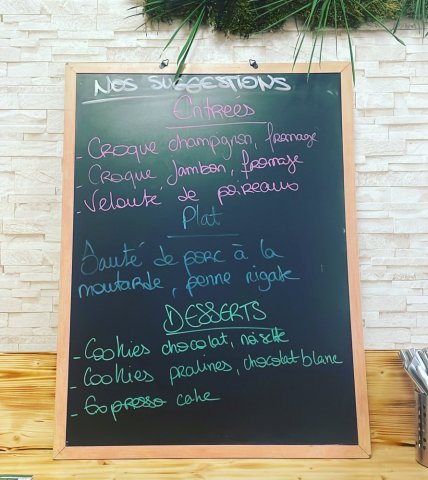 NOS SUGGESTIONS
Entrees
- Croque champignon, fromage
- Croque Jambon, fromage
- Velouté de poireaux
Plat
Sauté de porc à la
moutarde, penne rigate
DESSERTS
- Cookies chocolat, noisette
- Cookies pralines, chocolat blanc
- Expresso cake